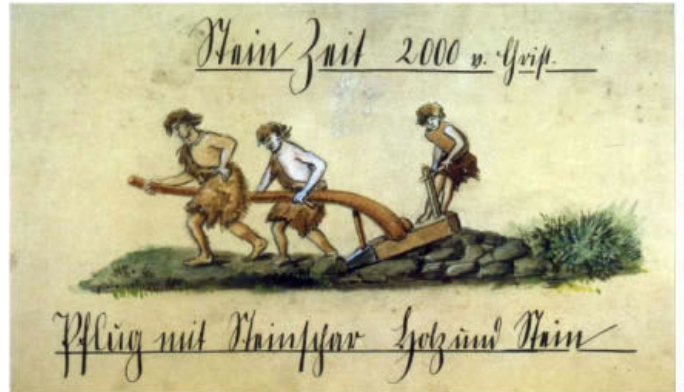 Stein Zeit 2000 v. Christ.
Pflug mit Steinschar Holz und Stein